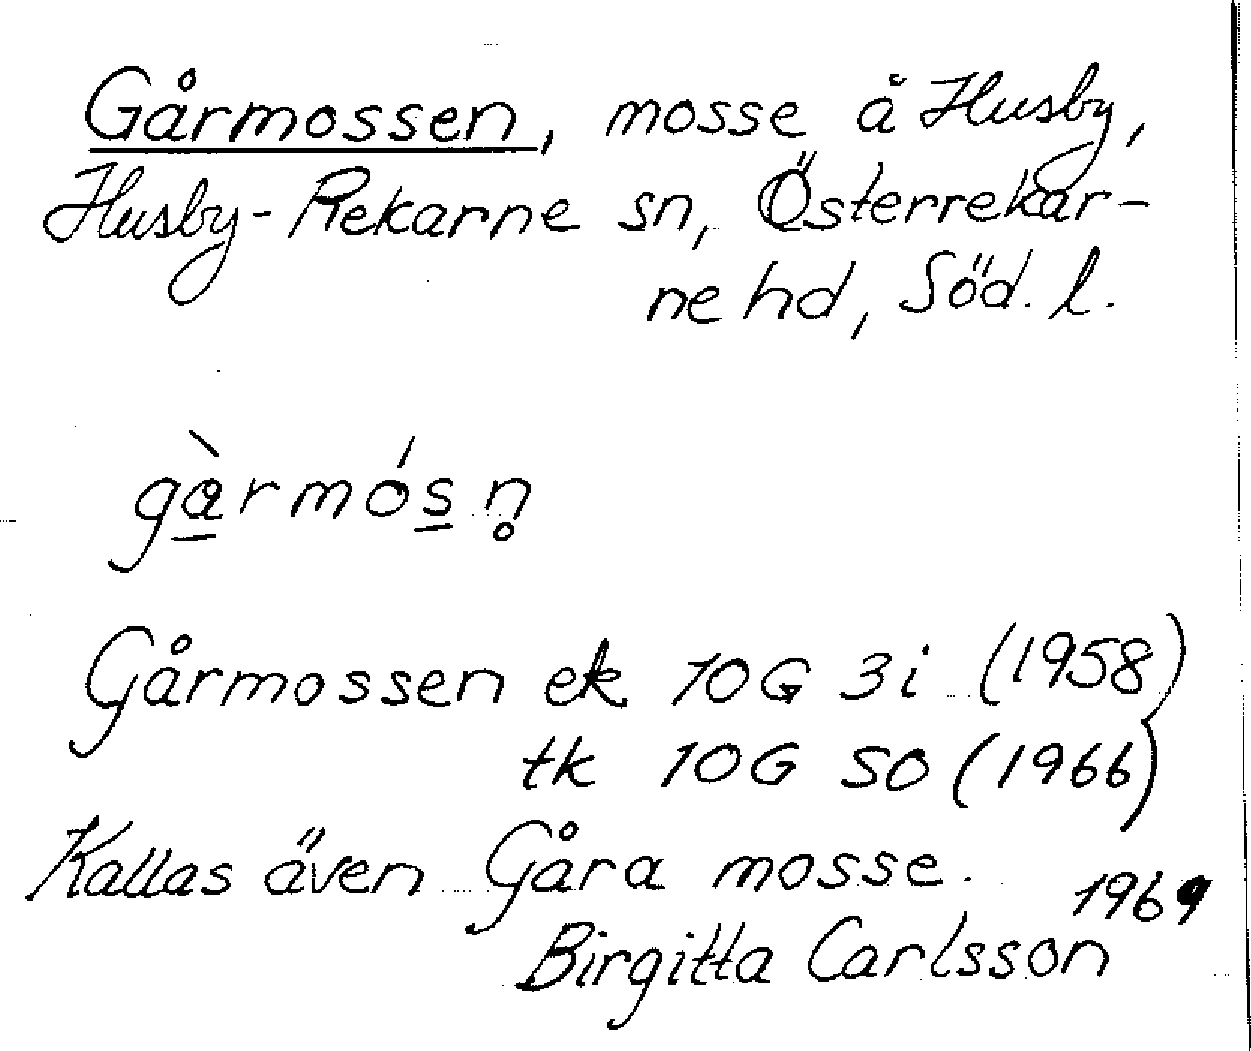 Gårmossen, mosse å Husby,
Husby-Rekarne sn, Österrekar-
ne hd, Söd. l.
gàrmósn̥
Gårmossen ek 10G 3i (1958)
tk 10G SO (1966)
Kallas även Gåra mosse.
1969
Birgitta Carlsson